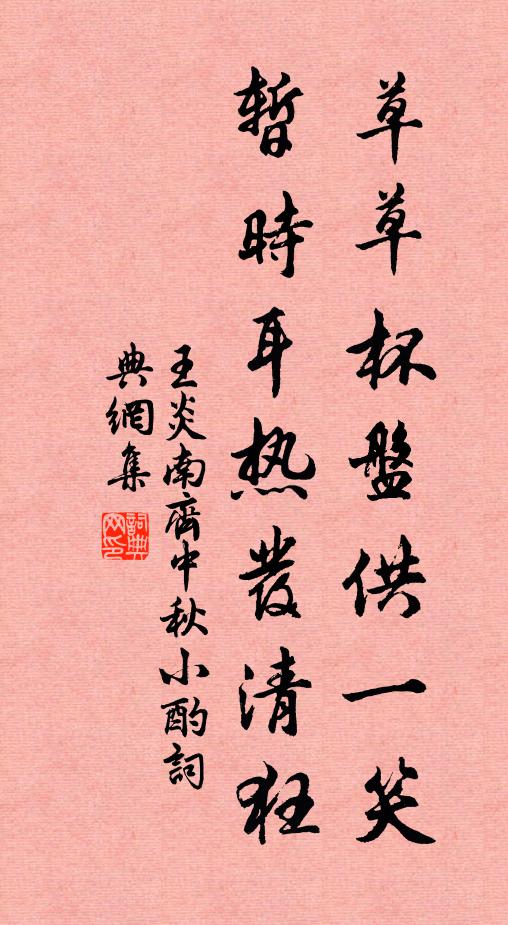 草草杯盤供一笑
暫時耳热發清狂
王炎南齊中秋小酌詞
典網集
詞典網印